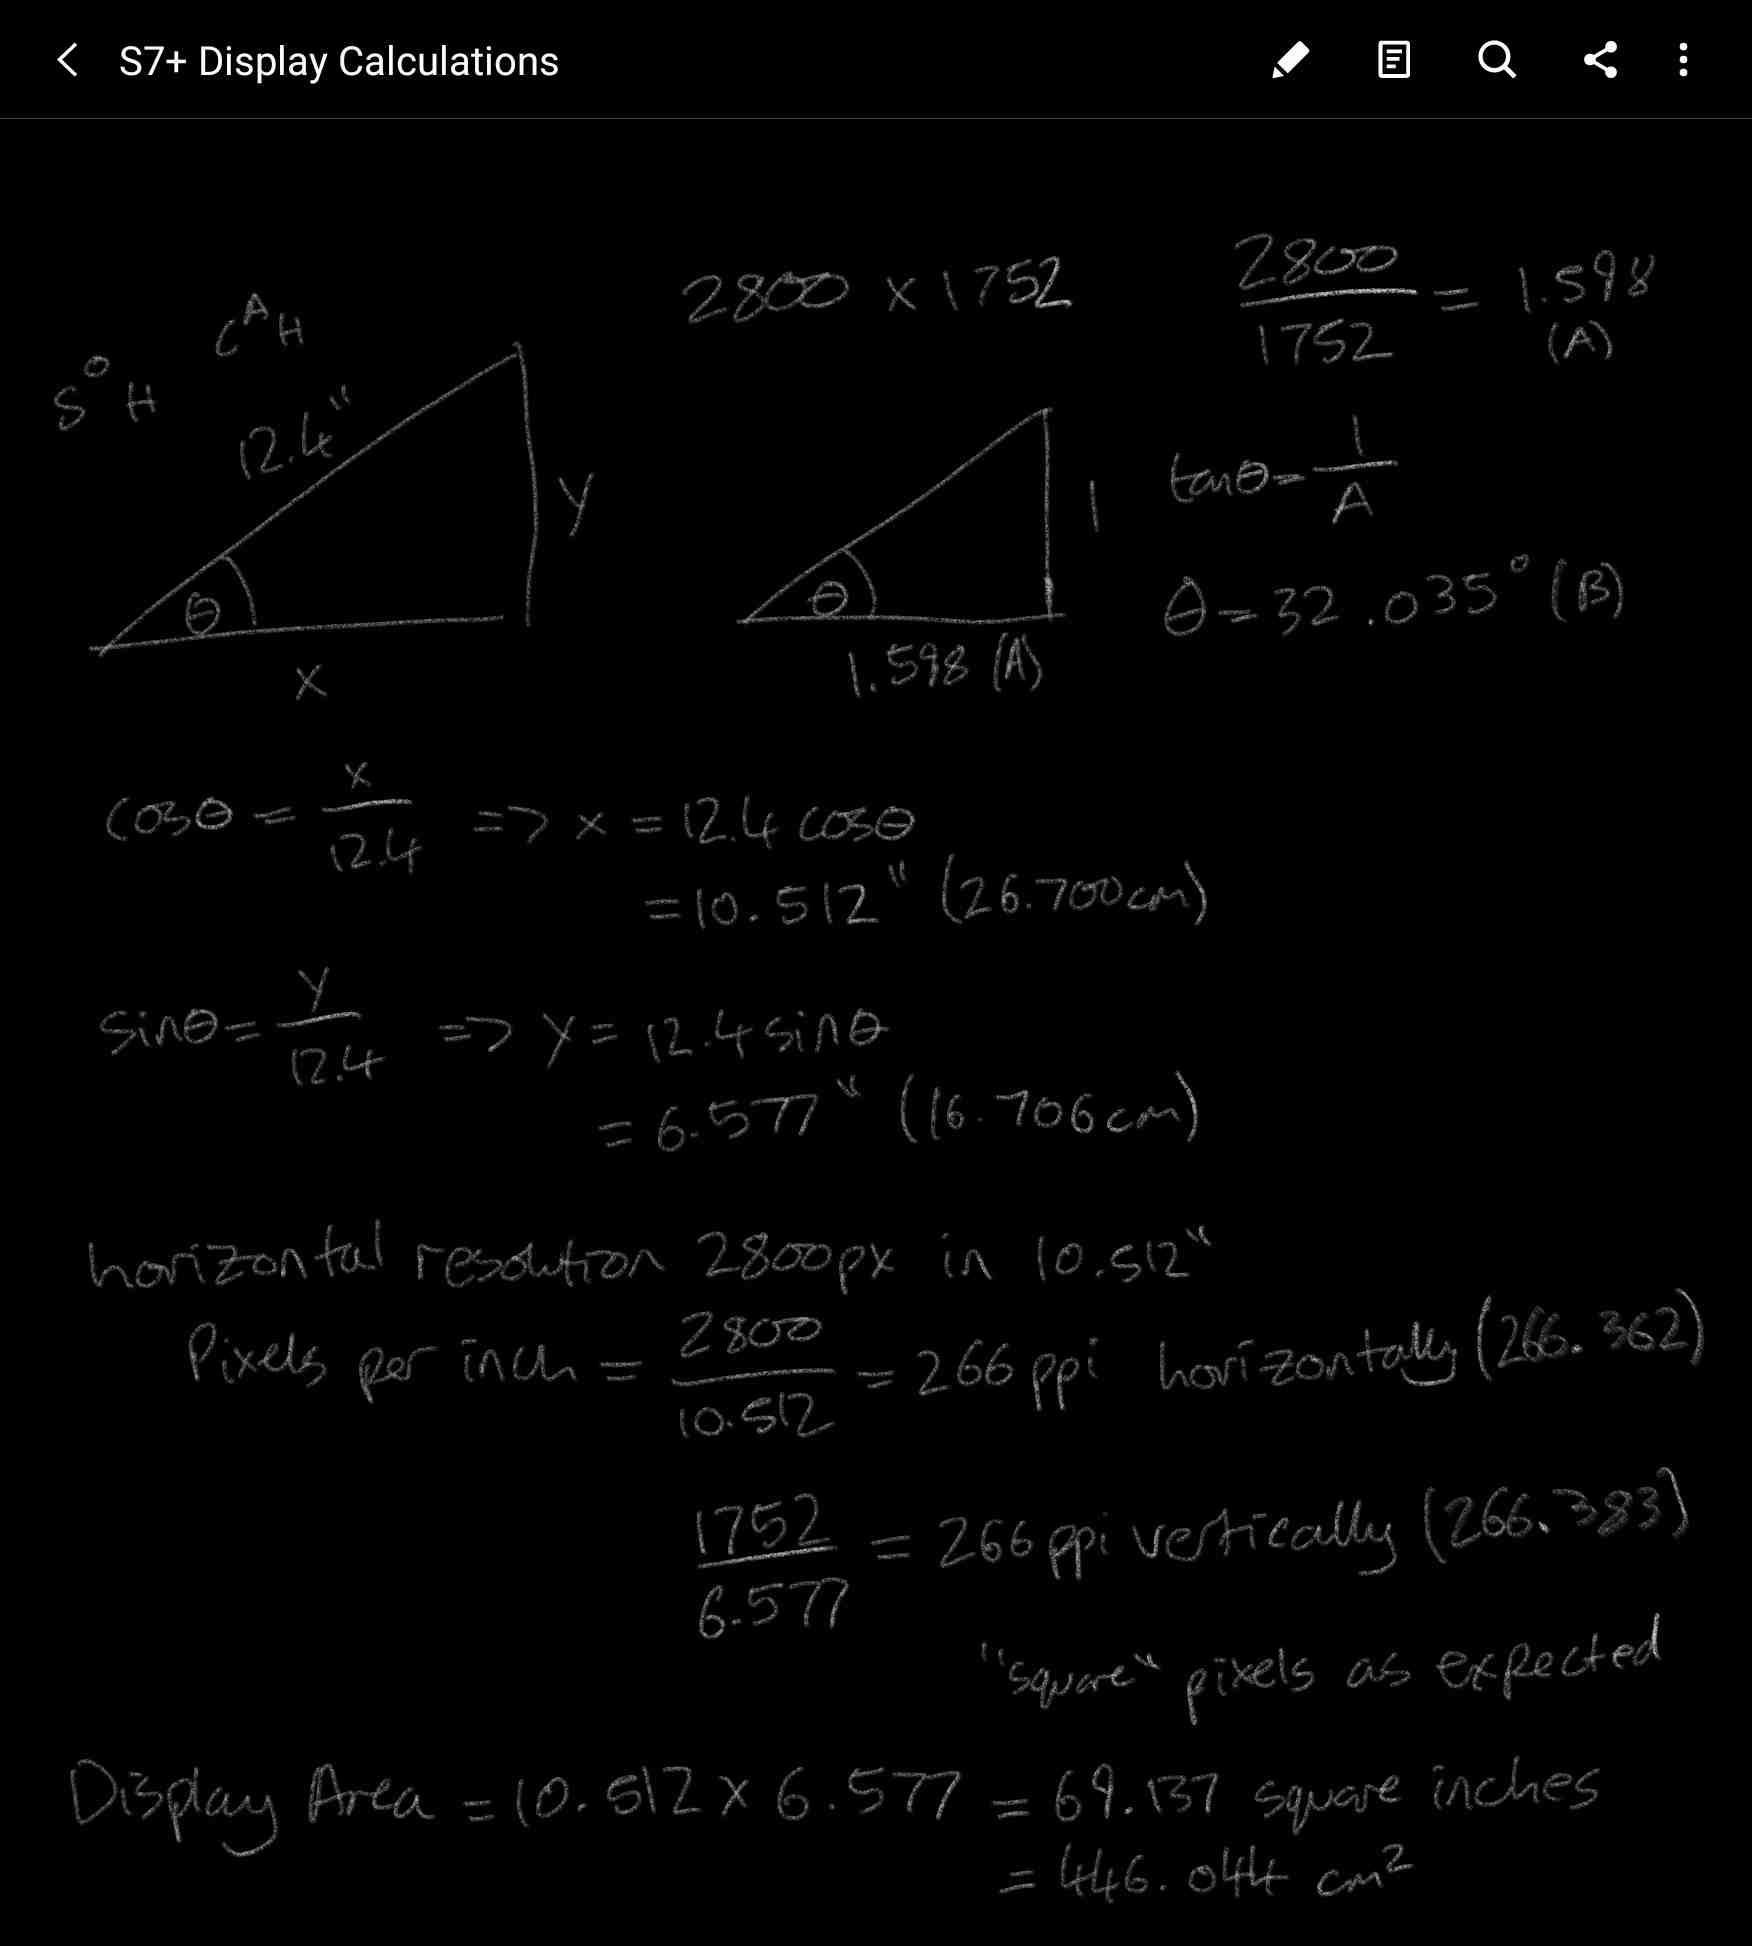 S7+ Display Calculations
2800 x 1752
2800/1752 = 1.598
(A)
CAH
SOH
12.4"
y
θ
x
1
θ
1.598 (A)
tanθ = 1/A
θ = 32.035° (B)
cosθ = x/12.4 => x = 12.4 cosθ
= 10.512" (26.700cm)
sinθ = y/12.4 => y = 12.4 sinθ
= 6.577" (16.706cm)
horizontal resolution 2800px in 10.512"
Pixels per inch = 2800/10.512 = 266 ppi horizontally (266.362)
1752/6.577 = 266 ppi vertically (266.383)
"square" pixels as expected
Display Area = 10.512 x 6.577 = 69.137 square inches
= 446.044 cm²